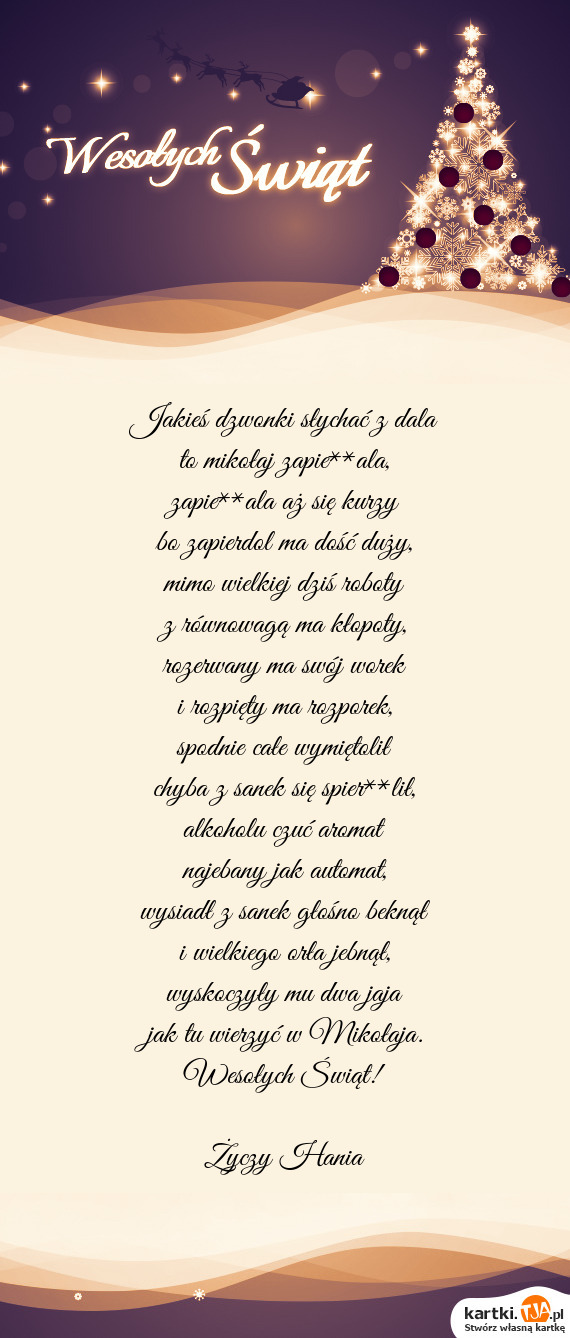 Wesołych Świąt
Jakieś dzwonki słychać z dala
to mikołaj zapie**ala,
zapie**ala aż się kurzy
bo zapierdol ma dość duży,
mimo wielkiej dziś roboty
z równowagą ma kłopoty,
rozerwany ma swój worek
i rozpięty ma rozporek,
spodnie całe wymiętolił
chyba z sanek się spier**lił,
alkoholu czuć aromat
najebany jak automat,
wysiadł z sanek głośno beknął
i wielkiego orła jebnął,
wyskoczyły mu dwa jaja
jak tu wierzyć w Mikołaja.
Wesołych Świąt!
Życzy Hania
kartki.TJA.pl
Stwórz własną kartkę